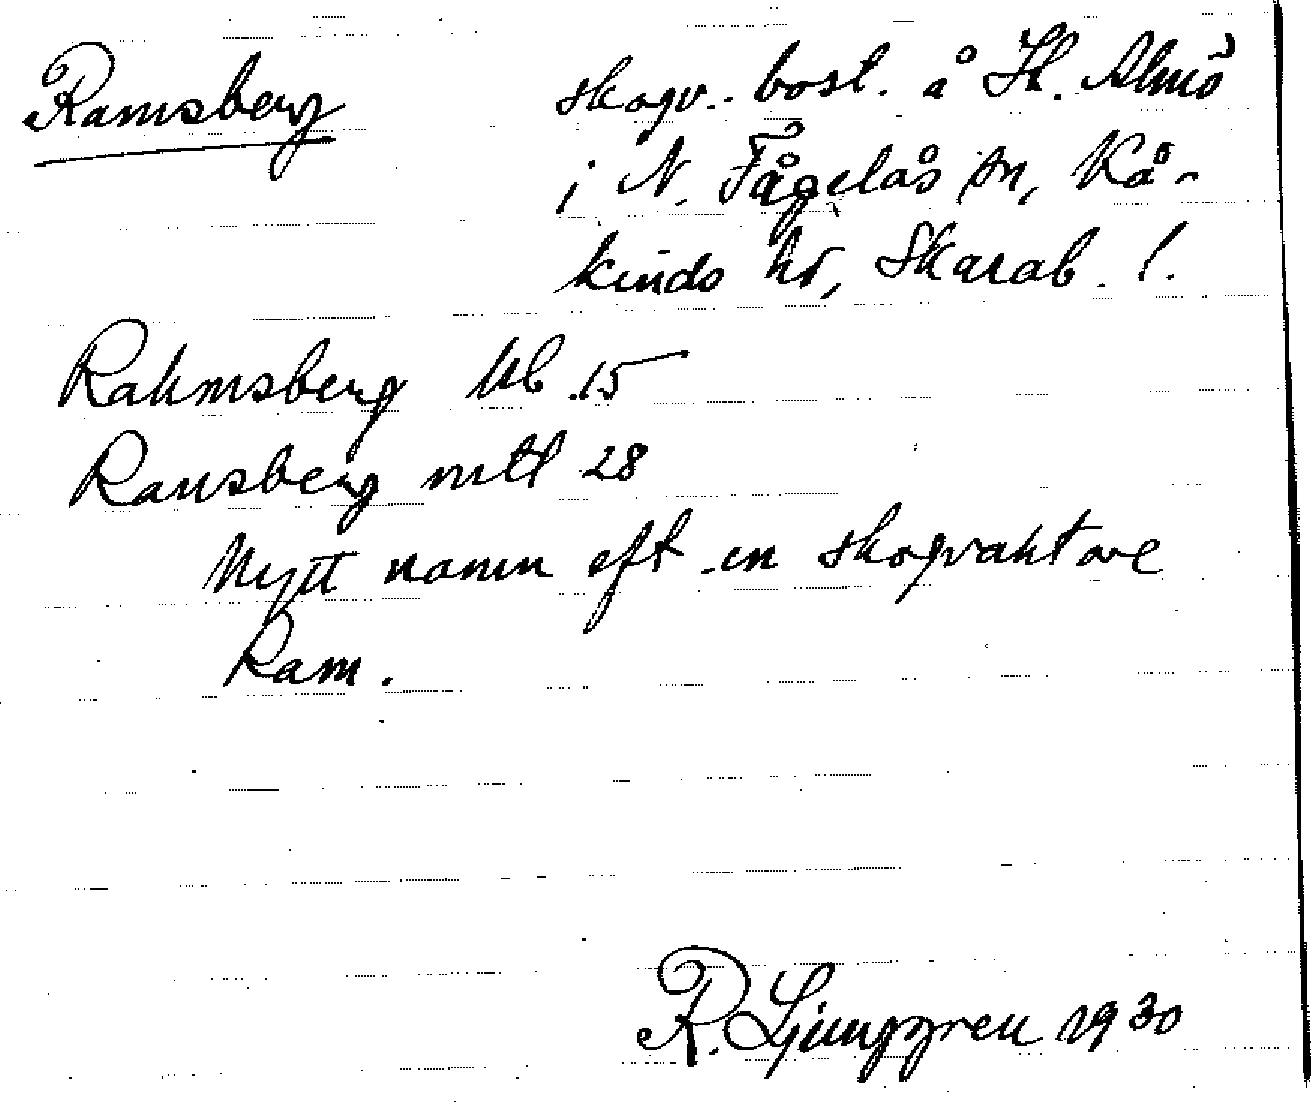 Ramsberg skogv. bost. å St. Almö
i N. Fågelås sn, Kå-
kinds hd, Skarab. l.
Rahmsberg Ub 15
Ramsberg mtl 28
Nytt namn eft en skogvaktare
Ram.
R. Ljunggren 1930